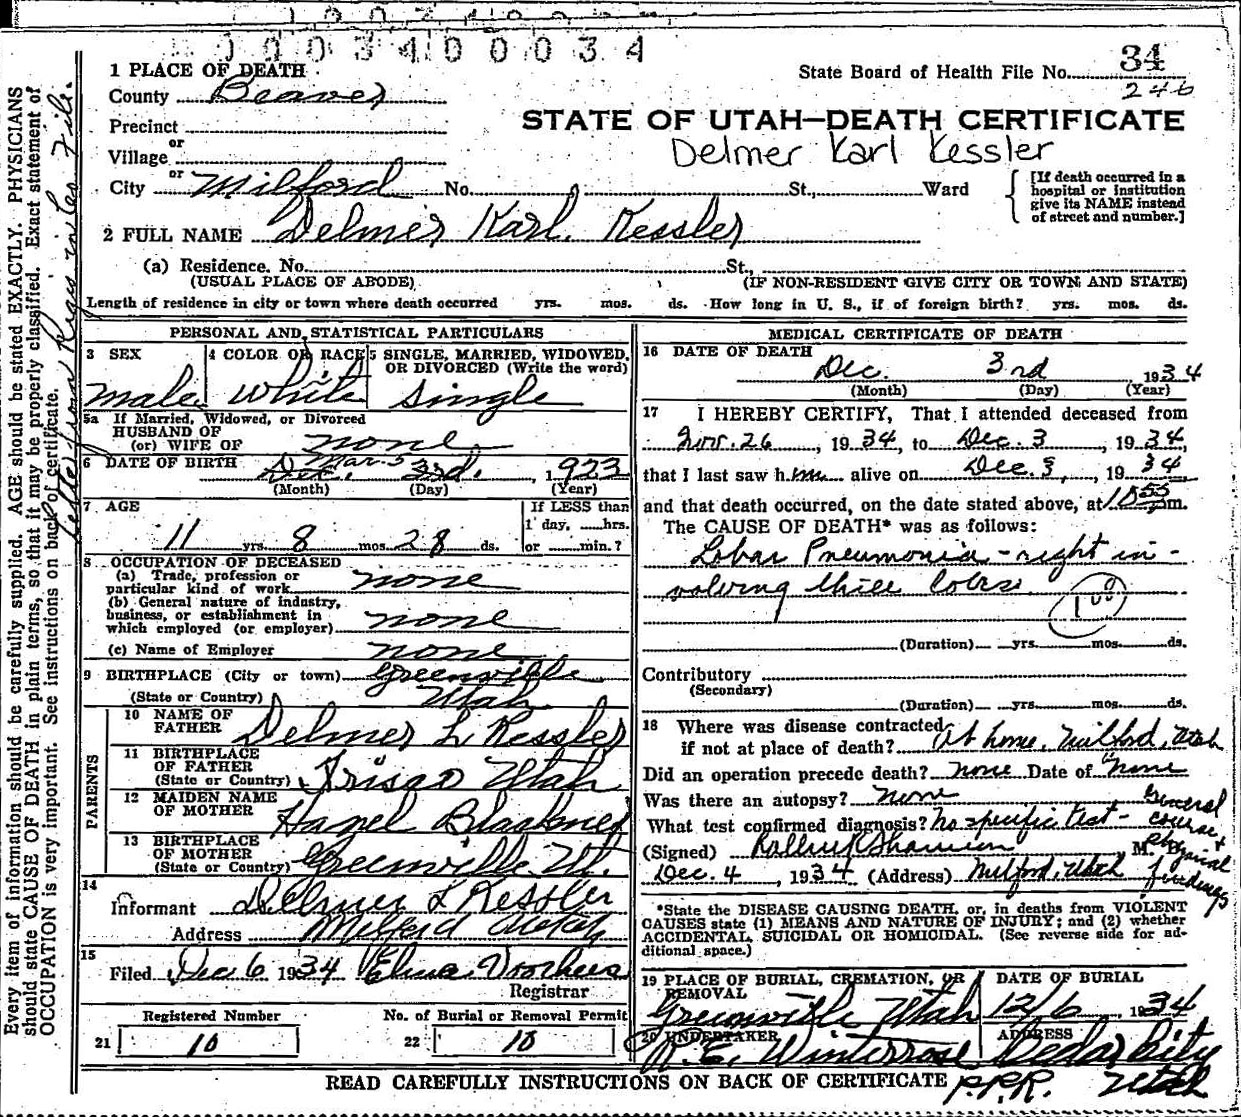 0003400034
34
State Board of Health File No.
246
1 PLACE OF DEATH
County Beaver
STATE OF UTAH—DEATH CERTIFICATE
Delmer Karl Kessler
Precinct
or
Village
or
City Milford No. St., Ward
[If death occurred in a hospital or institution give its NAME instead of street and number.]
2 FULL NAME Delmer Karl Kessler
(a) Residence. No. St.,
(USUAL PLACE OF ABODE) (IF NON-RESIDENT GIVE CITY OR TOWN AND STATE)
Length of residence in city or town where death occurred yrs. mos. ds. How long in U. S., if of foreign birth? yrs. mos. ds.
PERSONAL AND STATISTICAL PARTICULARS
3 SEX 4 COLOR OR RACE 5 SINGLE, MARRIED, WIDOWED, OR DIVORCED (Write the word)
male white single
5a If Married, Widowed, or Divorced
HUSBAND OF
(or) WIFE OF none
6 DATE OF BIRTH Dec. 3rd. Mar. 5 1923
(Month) (Day) (Year)
7 AGE If LESS than
1 day, hrs.
11 yrs. 8 mos. 28 ds. or min.?
8 OCCUPATION OF DECEASED
(a) Trade, profession or
particular kind of work none
(b) General nature of industry,
business, or establishment in
which employed (or employer) none
(c) Name of Employer none
9 BIRTHPLACE (City or town) Greenville
(State or Country) Utah
PARENTS
10 NAME OF
FATHER Delmer L Kessler
11 BIRTHPLACE
OF FATHER
(State or Country) Frisco Utah
12 MAIDEN NAME
OF MOTHER Hazel Blackner
13 BIRTHPLACE
OF MOTHER
(State or Country) Greenville Ut.
14
Informant Delmer L Kessler
Address Milford Utah
15
Filed Dec 6 1934 Elina Voorhees
Registrar
Registered Number No. of Burial or Removal Permit
21 10 22 10
MEDICAL CERTIFICATE OF DEATH
16 DATE OF DEATH
Dec. 3rd 1934
(Month) (Day) (Year)
17 I HEREBY CERTIFY, That I attended deceased from
Nov. 26, 1934, to Dec. 3, 1934,
that I last saw him alive on Dec. 3, 1934
and that death occurred, on the date stated above, at 10 55 m.
The CAUSE OF DEATH* was as follows:
Lobar Pneumonia - right in-
volving three lobes
100
(Duration) yrs. mos. ds.
Contributory
(Secondary)
(Duration) yrs. mos. ds.
18 Where was disease contracted
if not at place of death? At home, Milford, Utah
Did an operation precede death? none Date of none
Was there an autopsy? none
What test confirmed diagnosis? No specific test - General course & physical findings
(Signed) M.
Dec. 4, 1934 (Address) Milford, Utah
*State the DISEASE CAUSING DEATH, or, in deaths from VIOLENT
CAUSES state (1) MEANS AND NATURE OF INJURY; and (2) whether
ACCIDENTAL, SUICIDAL OR HOMICIDAL. (See reverse side for ad-
ditional space.)
19 PLACE OF BURIAL, CREMATION, OR REMOVAL DATE OF BURIAL
Greenville Utah 12/6 1934
20 UNDERTAKER ADDRESS
R. E. Winterrose Cedar City
Utah
READ CAREFULLY INSTRUCTIONS ON BACK OF CERTIFICATE P.P.R.
Every item of information should be carefully supplied. AGE should be stated EXACTLY. PHYSICIANS
should state CAUSE OF DEATH in plain terms, so that it may be properly classified. Exact statement of
OCCUPATION is very important. See instructions on back of certificate.